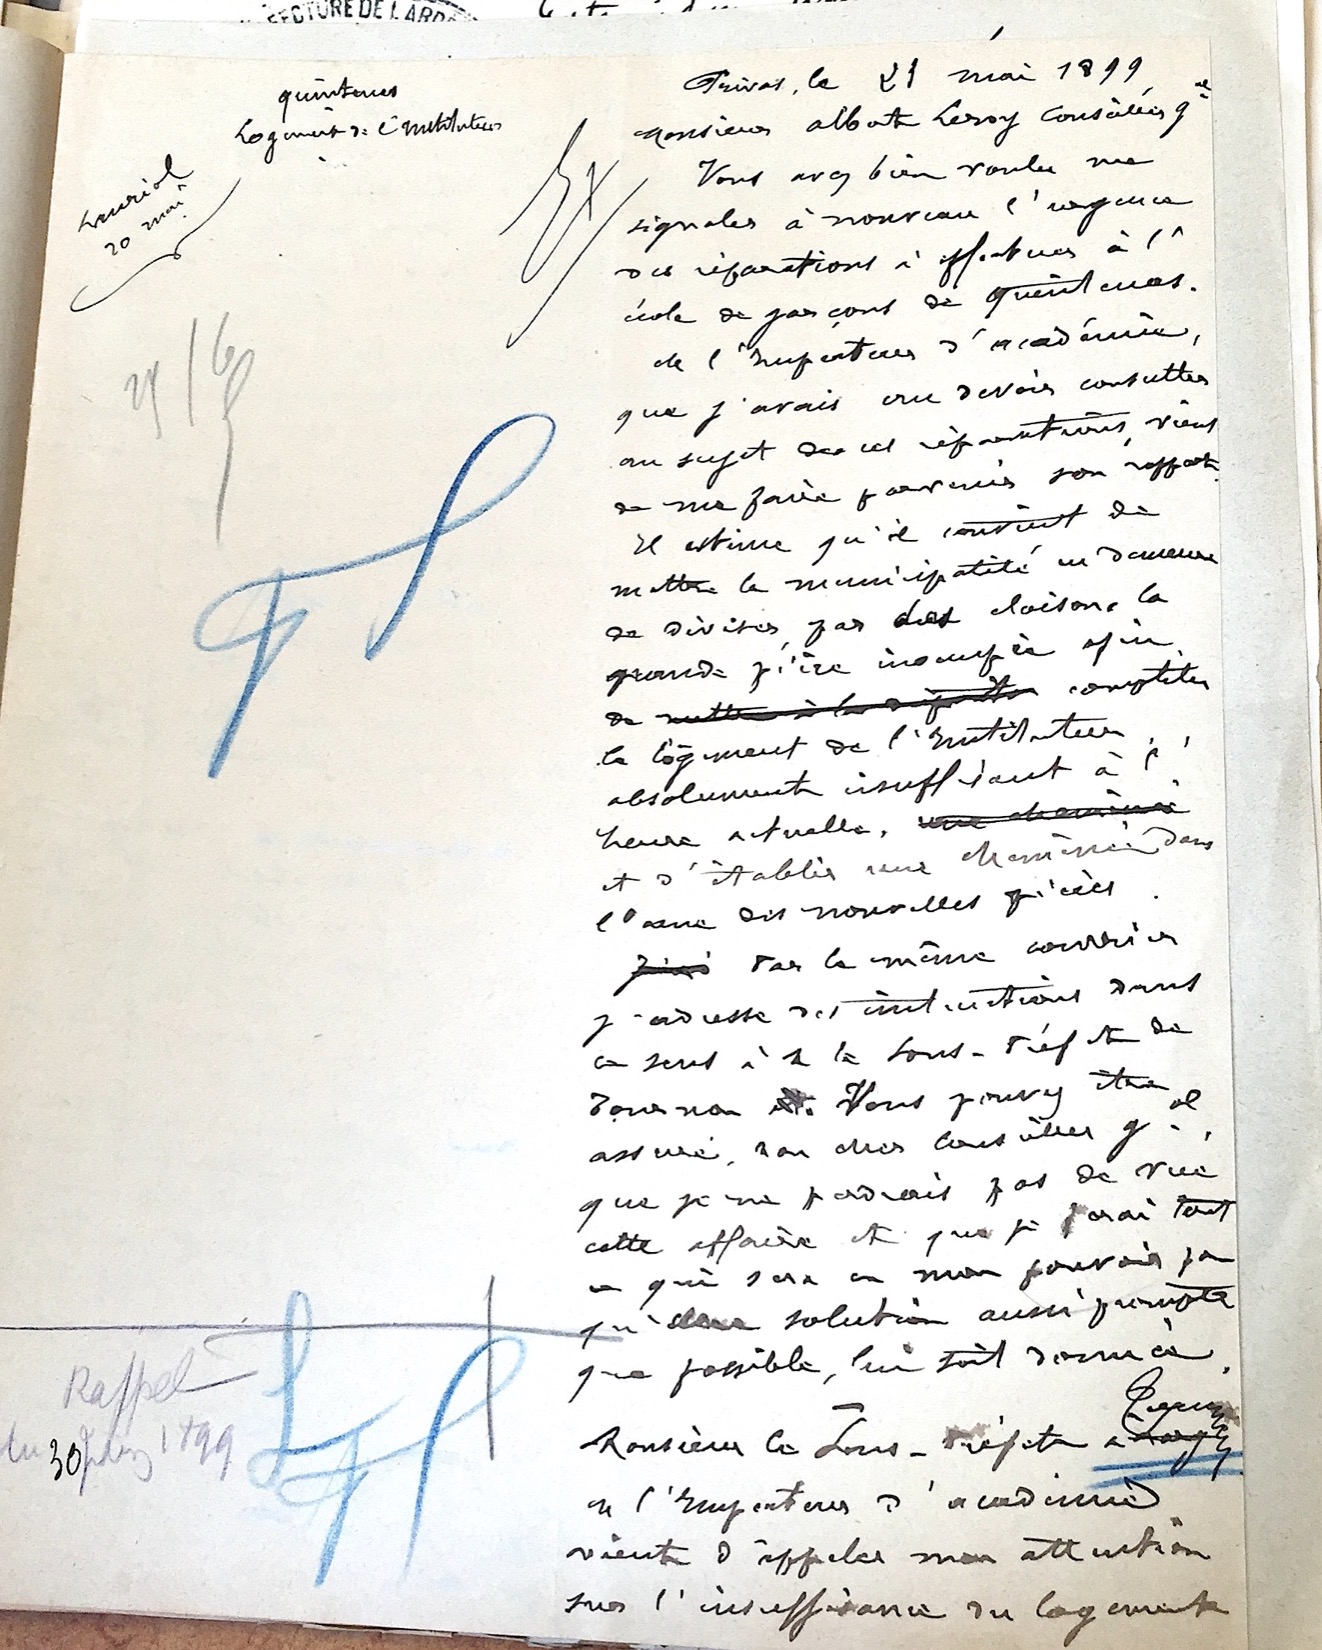 FECTURE DE L'ARD
Quintenas
Logement de l'Instituteur
20 mai
Rappel
du 30 1899
Privas, le 21 mai 1899
Monsieur Albert Leroy Conseiller gal
Vous avez bien voulu me
signaler à nouveau l'urgence
des réparations à effectuer à l'
école de garçons de Quintenas.
M. l'Inspecteur d'académie,
que j'avais cru devoir consulter
au sujet de ces réparations, vient
de me faire parvenir son rapport.
Il estime qu'il convient de
mettre la municipalité en demeure
de diviser, par des cloisons la
grande pièce inoccupée afin
de mettre à la disposit. compléter
le logement de l'Instituteur,
absolument insuffisant à l'
heure actuelle, une cheminée
et d'établir une cheminée dans
l'une des nouvelles pièces.
Par le même courrier
j'adresse des instructions dans
ce sens à M. le Sous-Préfet de
Tournon. Vous pouvez être
assuré, mon cher Conseiller gal,
que je ne perdrais pas de vue
cette affaire et que je ferai tout
ce qui sera en mon pouvoir pr
qu' solution aussi prompte
que possible, lui soit donnée.
Monsieur le Sous-Préfet à
M. l'Inspecteur d'académie
vient d'appeler mon attention
sur l'insuffisance du logement